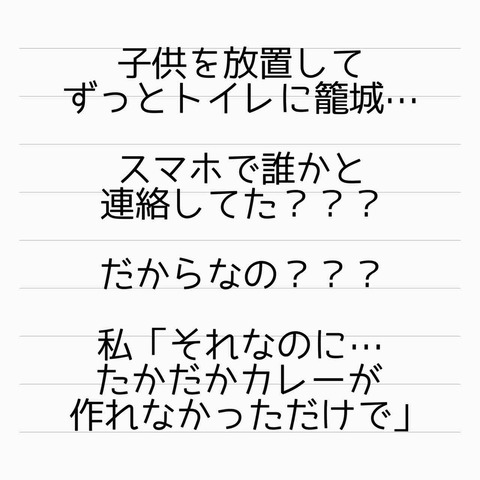 子供を放置して
ずっとトイレに籠城…
スマホで誰かと
連絡してた？？？
だからなの？？？
私「それなのに…
たかだかカレーが
作れなかっただけで」